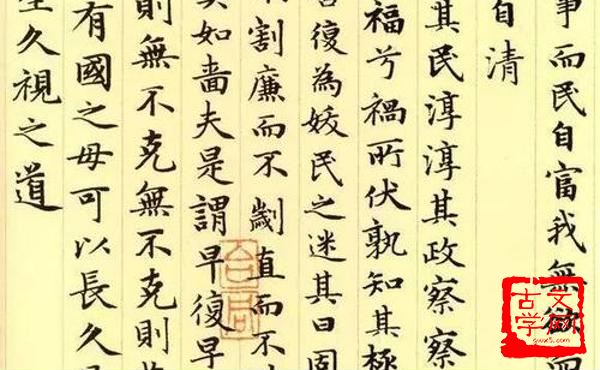 事而民自富我無欲
自清
其民淳淳其政察察
福兮禍所伏孰知其極
復為妖民之迷其日固
割廉而不劌直而不
莫如嗇夫是謂早復早
則無不克無不克則
有國之母可以長久
久視之道
古文
学